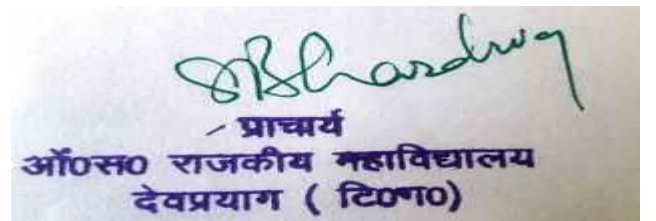 Bhardwaj
प्राचार्य
ओं0स0 राजकीय महाविद्यालय
देवप्रयाग ( टि0ग0)